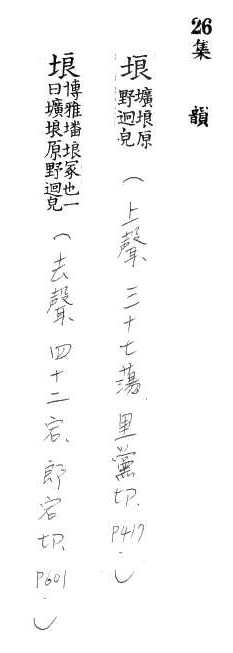 26
集韻
埌 壙埌原
野迥皃
（上聲、三十七蕩、里黨切、P417.）
埌 博雅墦埌冢也一
曰壙埌原野迥皃
（去聲、四十二宕、郎宕切、P601.）